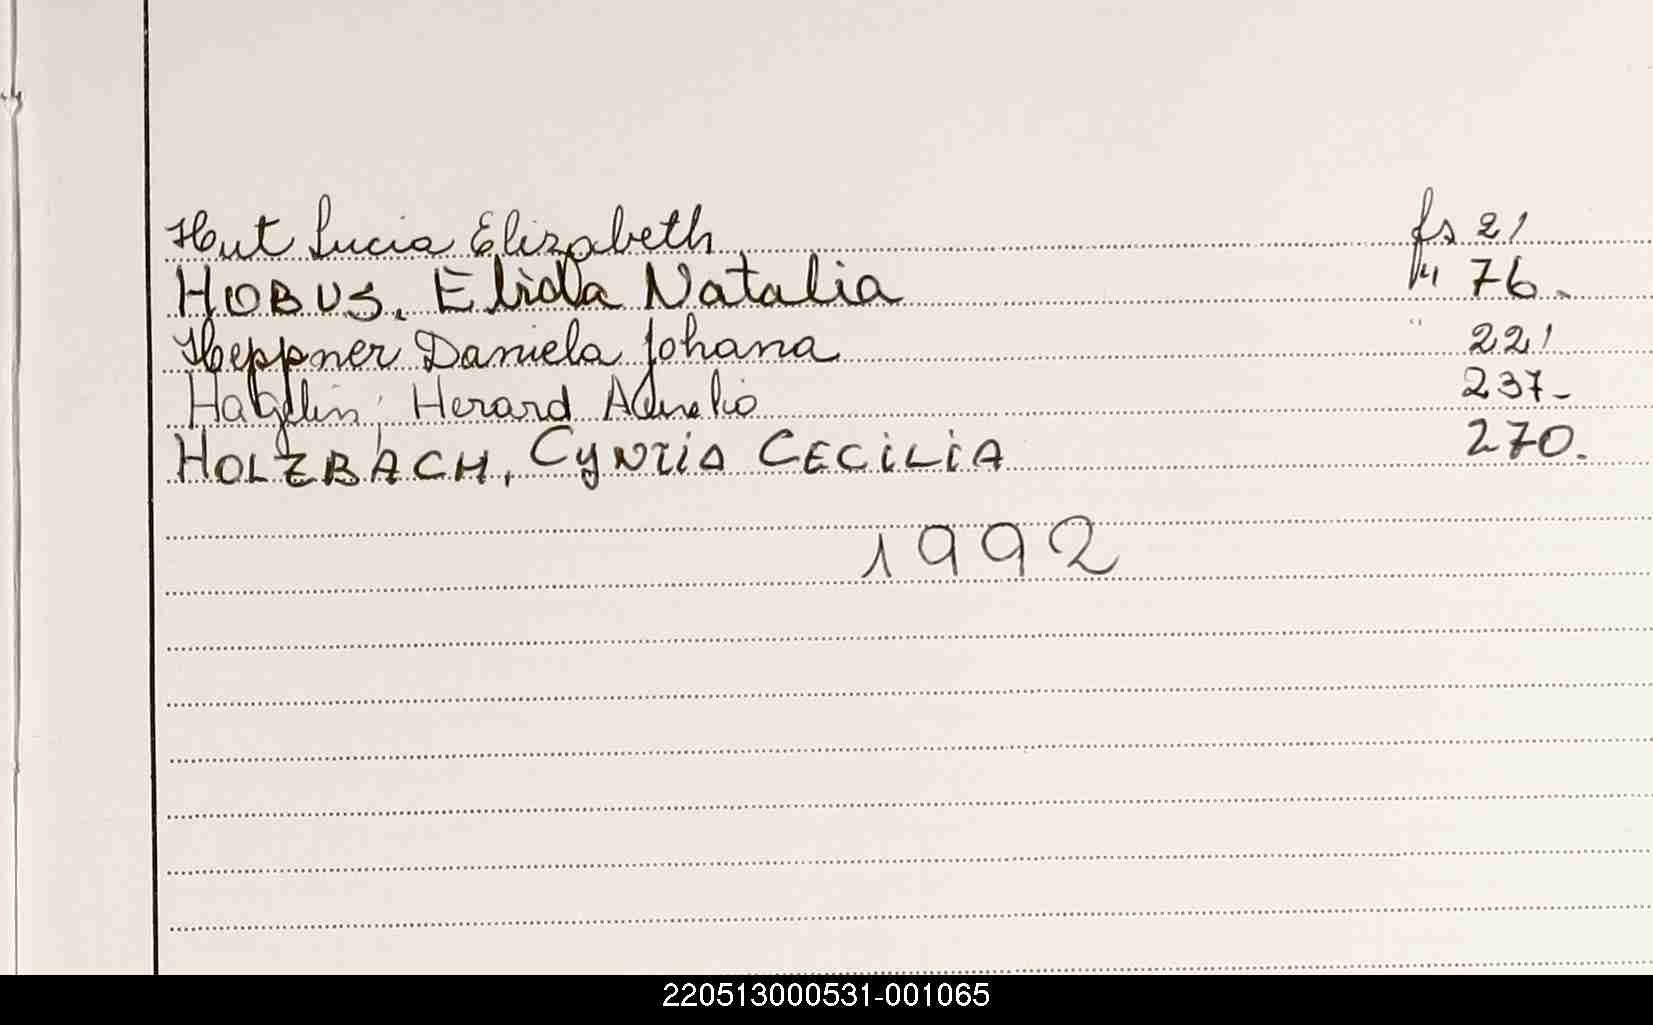 Hut Lucia Elizabeth fs 21
HOBUS, Elida Natalia " 76.
Heppner Daniela Johana " 221
Hagelin, Herard Aurelio 237-
HOLZBACH, CYNTIA CECILIA 270.
1992
220513000531-001065